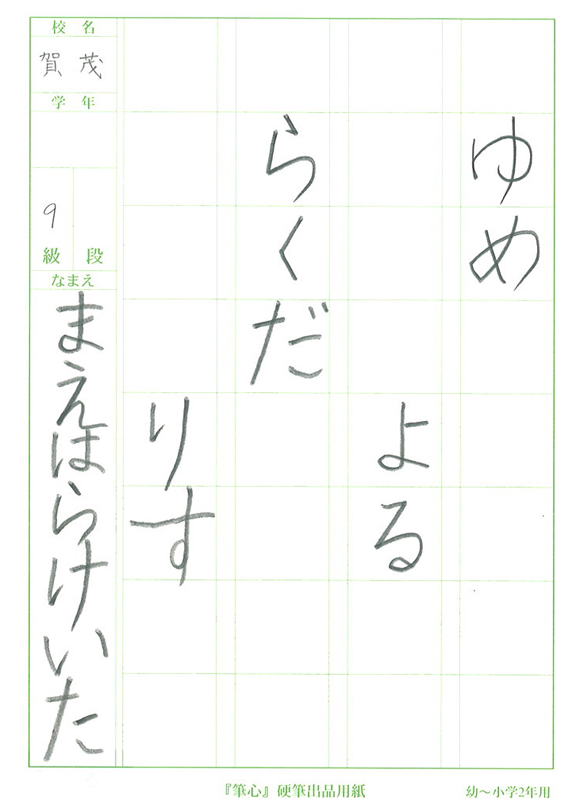 ゆめ
よる
らくだ
りす
校名
賀茂
学年
9
級 段
なまえ
まえはらけいた
『筆心』硬筆出品用紙
幼～小学2年用